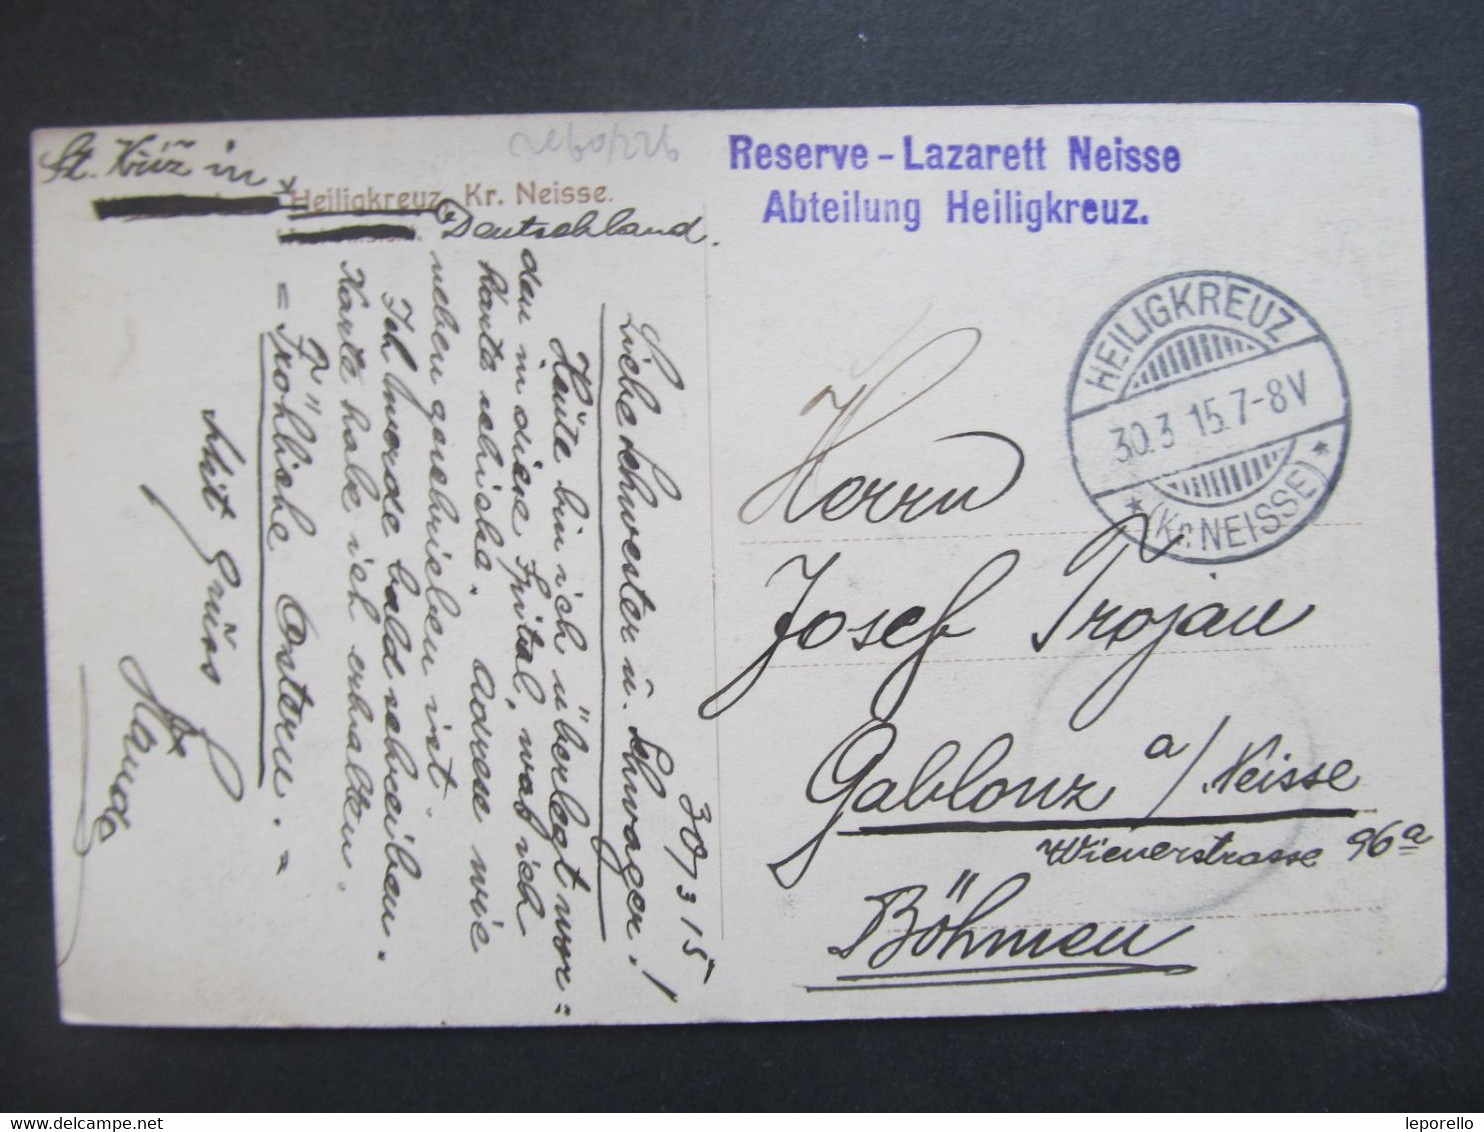 St. Křiž in
Heiligkreuz, Kr. Neisse.
Deutschland.
30/3 15
Liebe Schwester u. Schwager!
Heute bin ich überlegt wor=
den in diese Spital, was ich
Karte schicke. Adrese wie
neben geschrieben ist.
Ich werde bald schreiben.
Karte habe ich erhalten.
= Fröhliche Ostern. =
Mit Grüss
Reserve - Lazarett Neisse
Abteilung Heiligkreuz.
HEILIGKREUZ
30.3 15. 7-8V
* (Kr. NEISSE) *
Herrn
Josef Trojan
Gablonz a/Neisse
Wienerstrasse 96a
Böhmen
leporello
delcampe.net